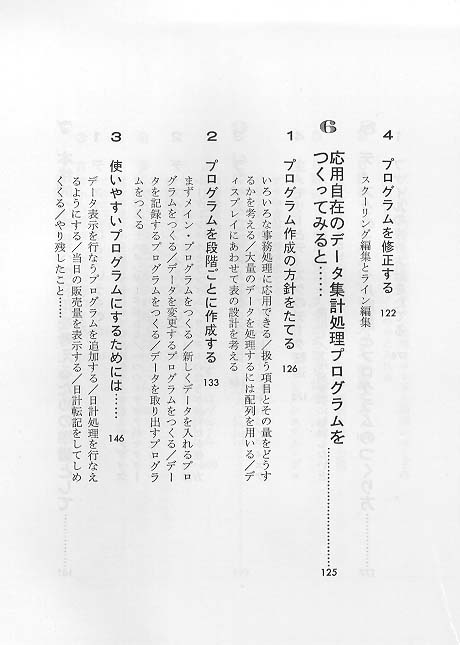 4 プログラムを修正する 122
スクーリング編集とライン編集
6 応用自在のデータ集計処理プログラムを
つくってみると…… 125
1 プログラム作成の方針をたてる 126
いろいろな事務処理に応用できる/扱う項目とその量をどうす
るかを考える/大量のデータを処理するには配列を用いる/デ
ィスプレイにあわせて表の設計を考える
2 プログラムを段階ごとに作成する 133
まずメイン・プログラムをつくる/新しくデータを入れるプロ
グラムをつくる/データを変更するプログラムをつくる/デー
タを記録するプログラムをつくる/データを取り出すプログラ
ムをつくる
3 使いやすいプログラムにするためには…… 146
データ表示を行なうプログラムを追加する/日計処理を行なえ
るようにする/当日の販売量を表示する/日計転記をしてしめ
くくる/やり残したこと……